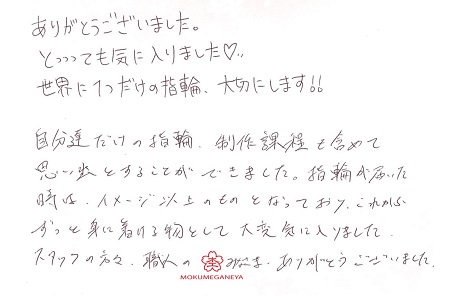 ありがとうございました。
とっっっても気に入りました♡。
世界に1つだけの指輪、大切にします!!
自分達だけの指輪、制作課程も含めて
思い出とすることができました。指輪が届いた
時は、イメージ以上のものとなっており、これから
ずっと身に着ける物として大変気に入りました。
スタッフの方々、職人のみなさま、ありがとうございました。
MOKUMEGANEYA